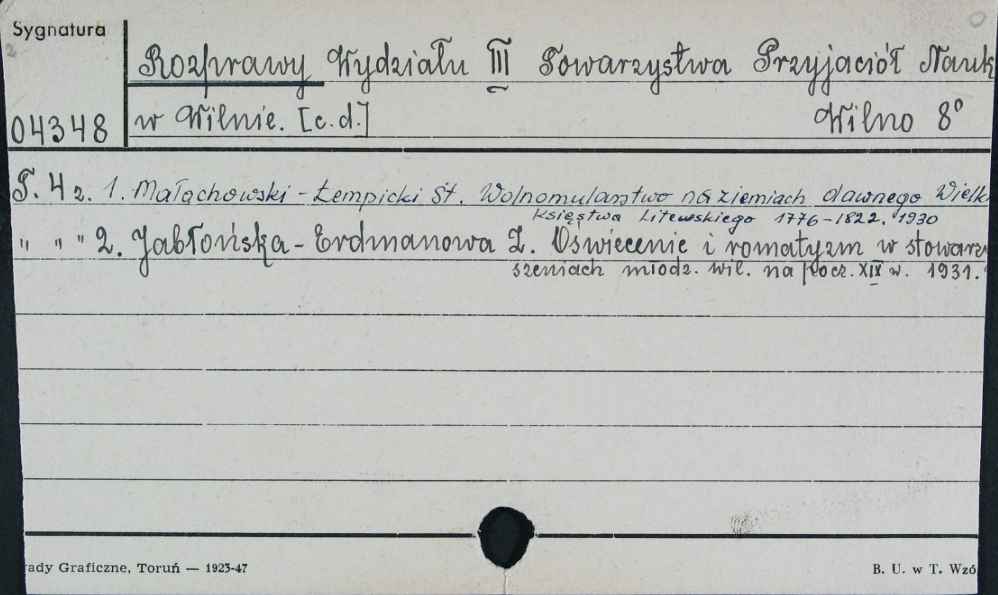 Sygnatura
Rozprawy Wydziału III Towarzystwa Przyjaciół Nauk
04348 w Wilnie. [c.d.] Wilno 8°
T. 4 z. 1. Małachowski-Łempicki St. Wolnomularstwo na ziemiach dawnego Wielk
Księstwa Litewskiego 1776-1822. 1930
" " " 2. Jabłońska-Erdmanowa Z. Oświecenie i romatyzm w stowarz
szeniach młodz. wil. na pocz. XIX w. 1931.
ady Graficzne, Toruń — 1923-47
B. U. w T. Wzó